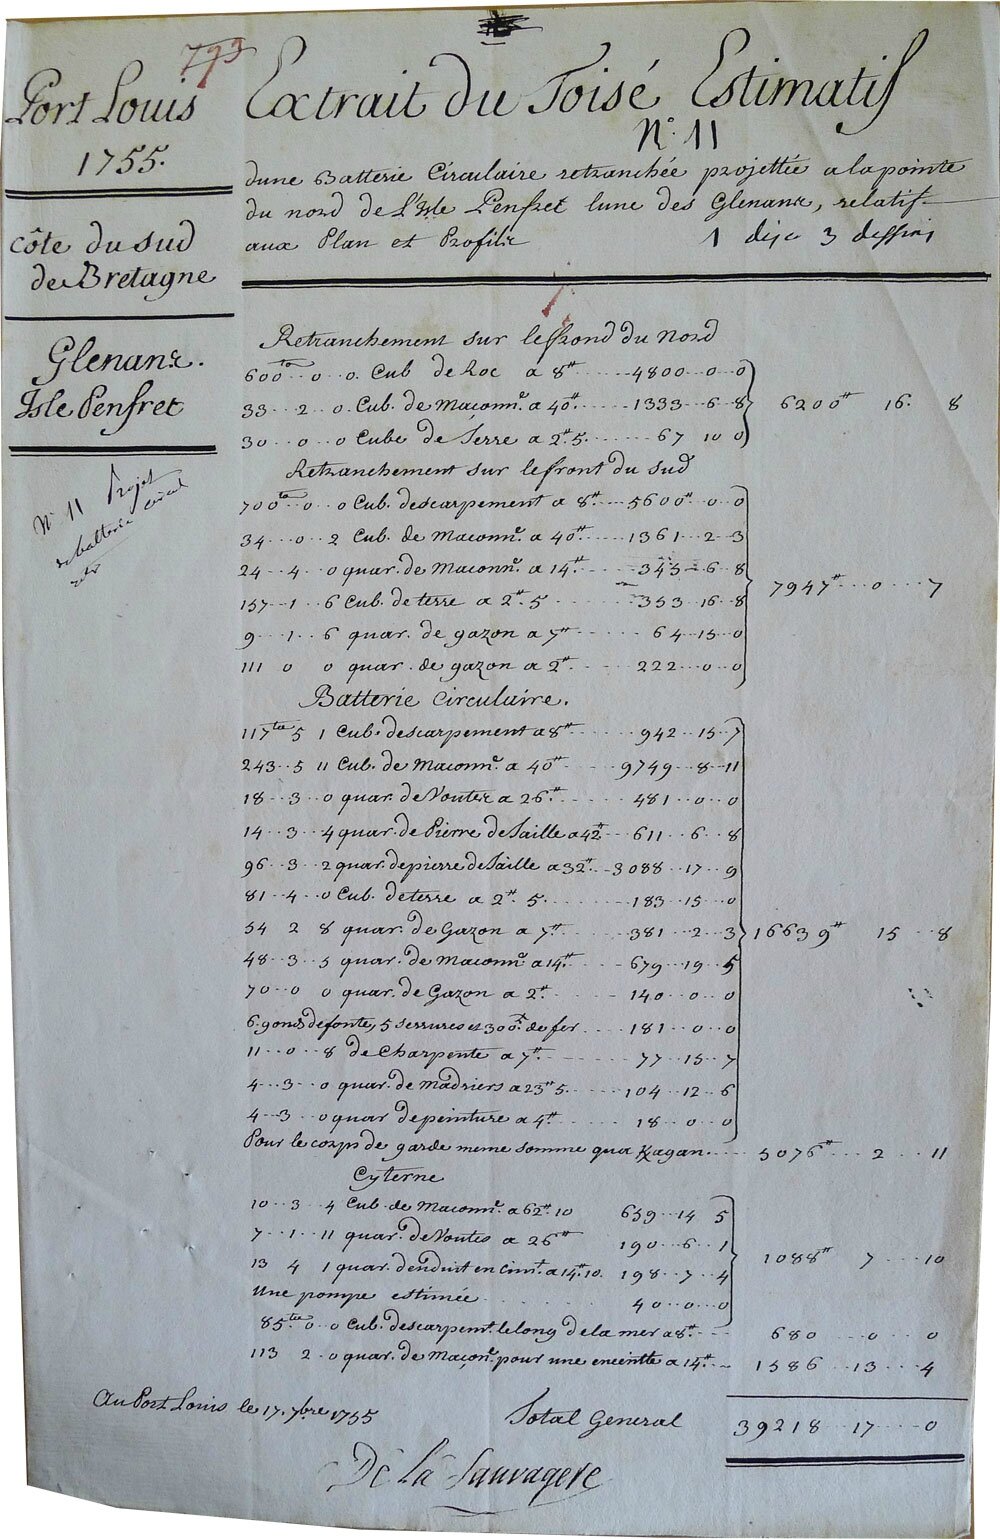 793
Port Louis
1755.
côte du sud
de Bretagne
Glenanz.
Isle Penfret
N° 11 Projet
Extrait du Toisé Estimatif
N° 11
dune Batterie Circulaire retranchée projettée a la pointe
du nord de L'Isle Penfret lune des Glenanz, relatif
aux Plan et Profilz
1 dº 3 dessins
Retranchement sur le frond du Nord
600 to 0 0 Cub de Roc a 8# 4800 0 0
33 2 0 Cub. de Maconn.e a 40# 1333 6 8 6200# 16. 8
30 0 0 Cube de Terre a 2# 5. 67 10 0
Retranchement sur le front du sud
700 to 0 0 Cub. descarpement a 8# 5600# 0 0
34 0 2 Cub. de Maconn.e a 40# 1361 2 3
24 4 0 quar. de Maconn.e a 14# 345 6 8
157 1 6 Cub. de terre a 2# 5 353 16 8 7947# 0 7
9 1 6 quar. de gazon a 7# 64 15 0
111 0 0 quar. de gazon a 2# 222 0 0
Batterie Circulaire.
117 to 5 1 Cub. descarpement a 8# 942 15 7
243 5 11 Cub. de Maconn.e a 40# 9749 8 11
18 3 0 quar. de Voutez a 26# 481 0 0
14 3 4 quar. de Pierre de Taille a 42# 611 6 8
96 3 2 quar. de pierre de Taille a 32# 3088 17 9
81 4 0 Cub. de terre a 2# 5. 183 15 0
54 2 8 quar. de Gazon a 7# 381 2 3 16639# 15 8
48 3 5 quar. de Maconn.e a 14# 679 19 5
70 0 0 quar. de Gazon a 2# 140 0 0
6 gonds de fonte, 5 serrures et 300# de fer 181 0 0
11 0 8 de Charpente a 7# 77 15 7
4 3 0 quar. de Madriers a 23# 5 104 12 6
4 3 0 quar de peinture a 4# 18 0 0
Pour le corps de garde meme somme qua Kagan 5076# 2 11
Cyterne
10 3 4 Cub. de Maconn.e a 62# 10 659 14 5
7 1 11 quar. de Voutes a 26# 190 6 1
13 4 1 quar. d'enduit en Cim.t a 14# 10. 198 7 4 1088# 7 10
Une pompe estimée 40 0 0
85 to 0 0 Cub. descarpem.t le long de la mer a 8# 680 0 0
113 2 0 quar. de Maçon.e pour une enceintte a 14# 1586 13 4
Au Port Louis le 17. 7bre 1755
Total General 39218 17 0
De la Sauvagere